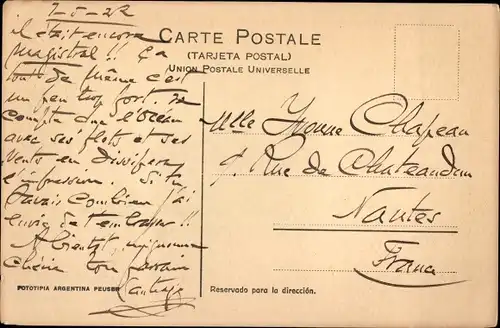 7-5-22
il était encore
magistral !! Ça
tout de même c'est
un peu trop fort. Je
compte que l'Océan
avec ses flots et ses
vents en dissipera
l'impression. Si tu
savais combien j'ai
envie de t'embrasser !!
A bientôt, mignonne
chérie ton parrain
CARTE POSTALE
(TARJETA POSTAL)
UNION POSTALE UNIVERSELLE
Mlle Yvonne Chapeau
9. Rue de Chateaudun
Nantes
France
FOTOTIPIA ARGENTINA PEUSER
Reservado para la dirección.